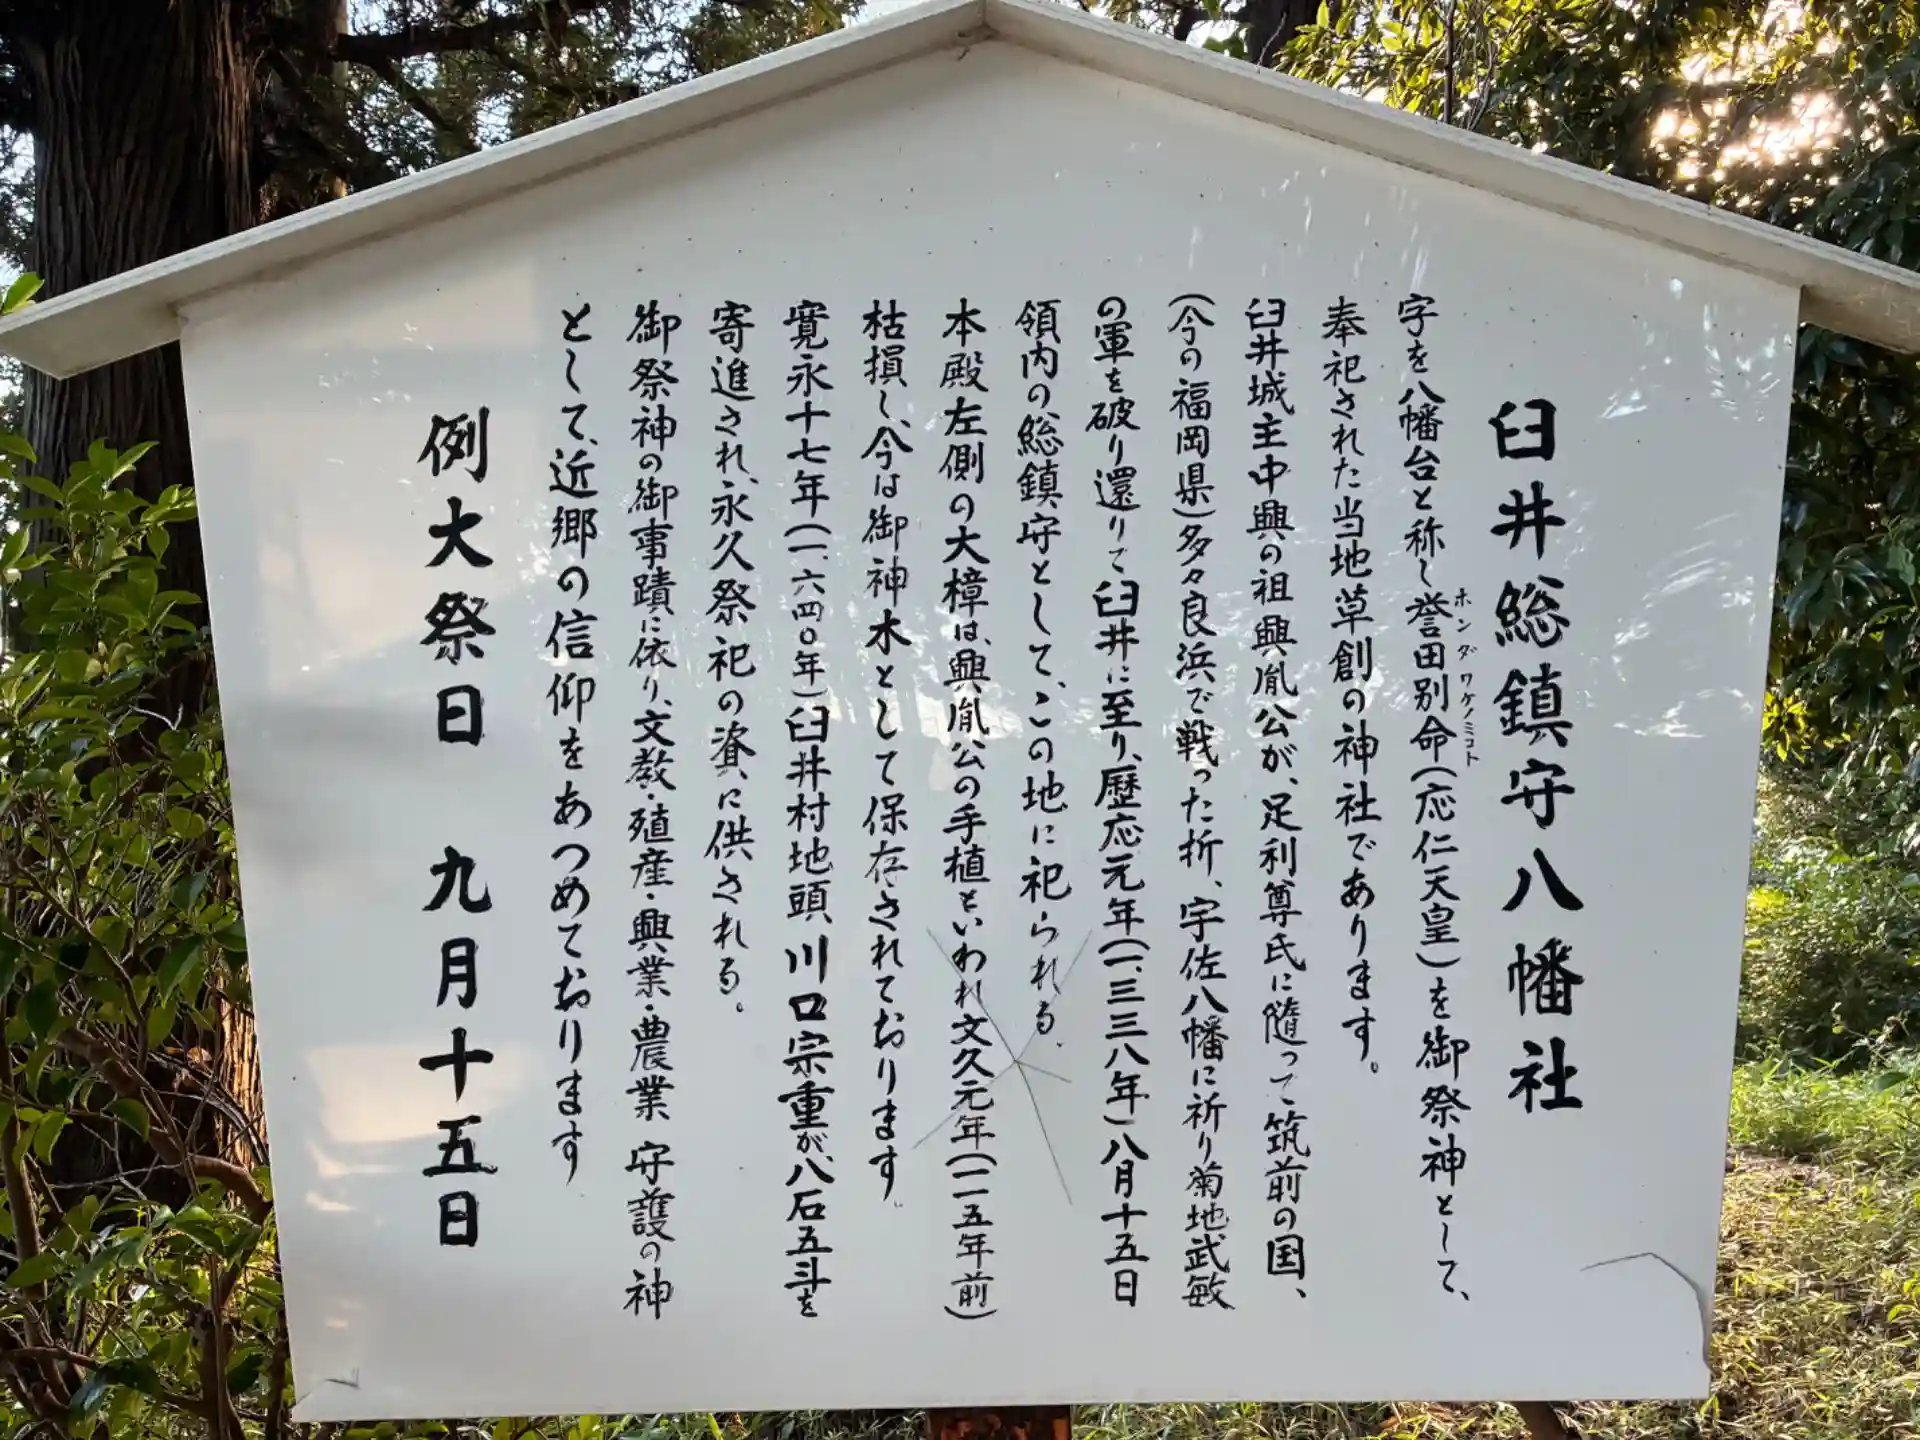 臼井総鎮守八幡社
字を八幡台と称し誉田別命(応仁天皇)を御祭神として、
ホンダワケノミコト
奉祀された当地草創の神社であります。
臼井城主中興の祖興胤公が、足利尊氏に隨って筑前の国、
(今の福岡県)多々良浜で戦った折、宇佐八幡に祈り菊地武敏
の軍を破り還りて臼井に至り、歴応元年(一、三三八年)八月十五日
領内の総鎮守として、この地に祀られる、
本殿左側の大樟は、興胤公の手植といわれ文久元年(一一五年前)
枯損し、今は御神木として保存されております。
寛永十七年(一、六四〇年)臼井村地頭、川口宗重が、八石五斗を
寄進され、永久祭祀の資に供される。
御祭神の御事蹟に依り、文教・殖産・興業・農業 守護の神
として、近郷の信仰をあつめております
例大祭日 九月十五日